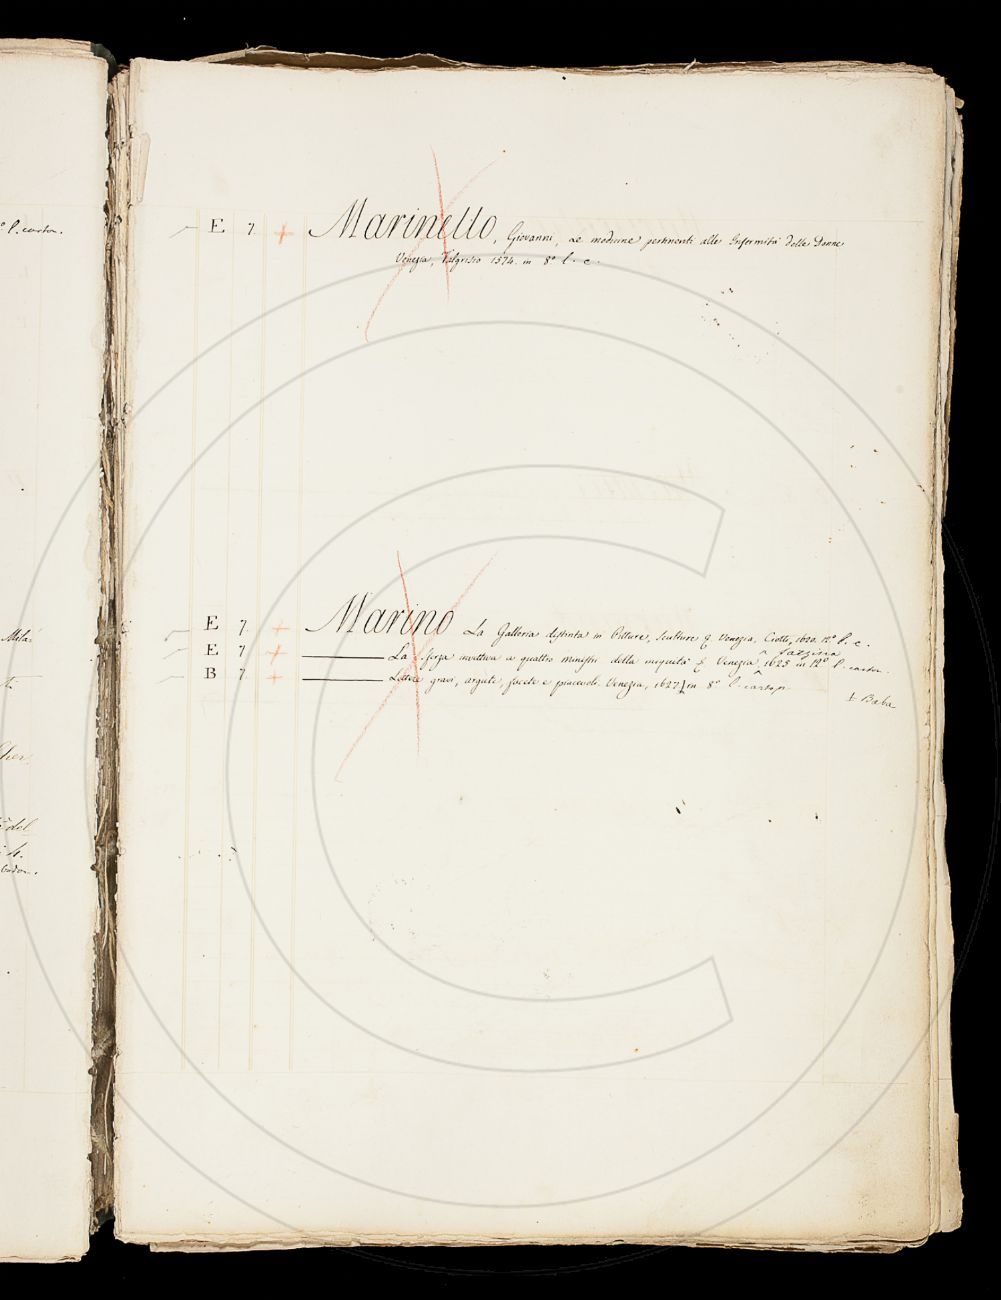 ° l. carton.
E 7 + Marinello, Giovanni, Le medicine pertinenti alle Infermità delle Donne
Venezia, Valgrisio 1574. in 8° l. c.
E 7 + Marino La Galleria distinta in Pitture, Sculture & Venezia, Ciotti, 1620. 12° l. c.
Sarzina
E 7 + ——— La sferza invettiva a quattro ministri della iniquità & Venezia, ^ 1625 in 12° l. carton.
B 7 + ——— Lettere gravi, argute, facete e piacevoli. Venezia, 1627 in 8° l. carton.
Baba